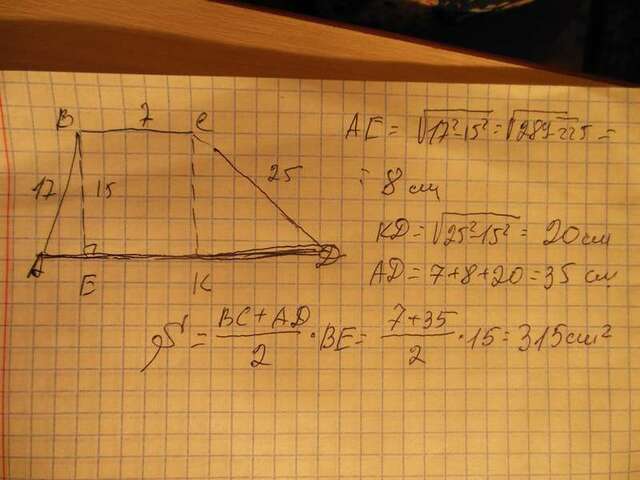 B 7 C
17 15 25
A E K D
AE = √17²-15² = √289-225 =
= 8 см
KD = √25²-15² = 20 см
AD = 7+8+20 = 35 см
S = (BC + AD)/2 · BE = (7+35)/2 · 15 = 315 см²